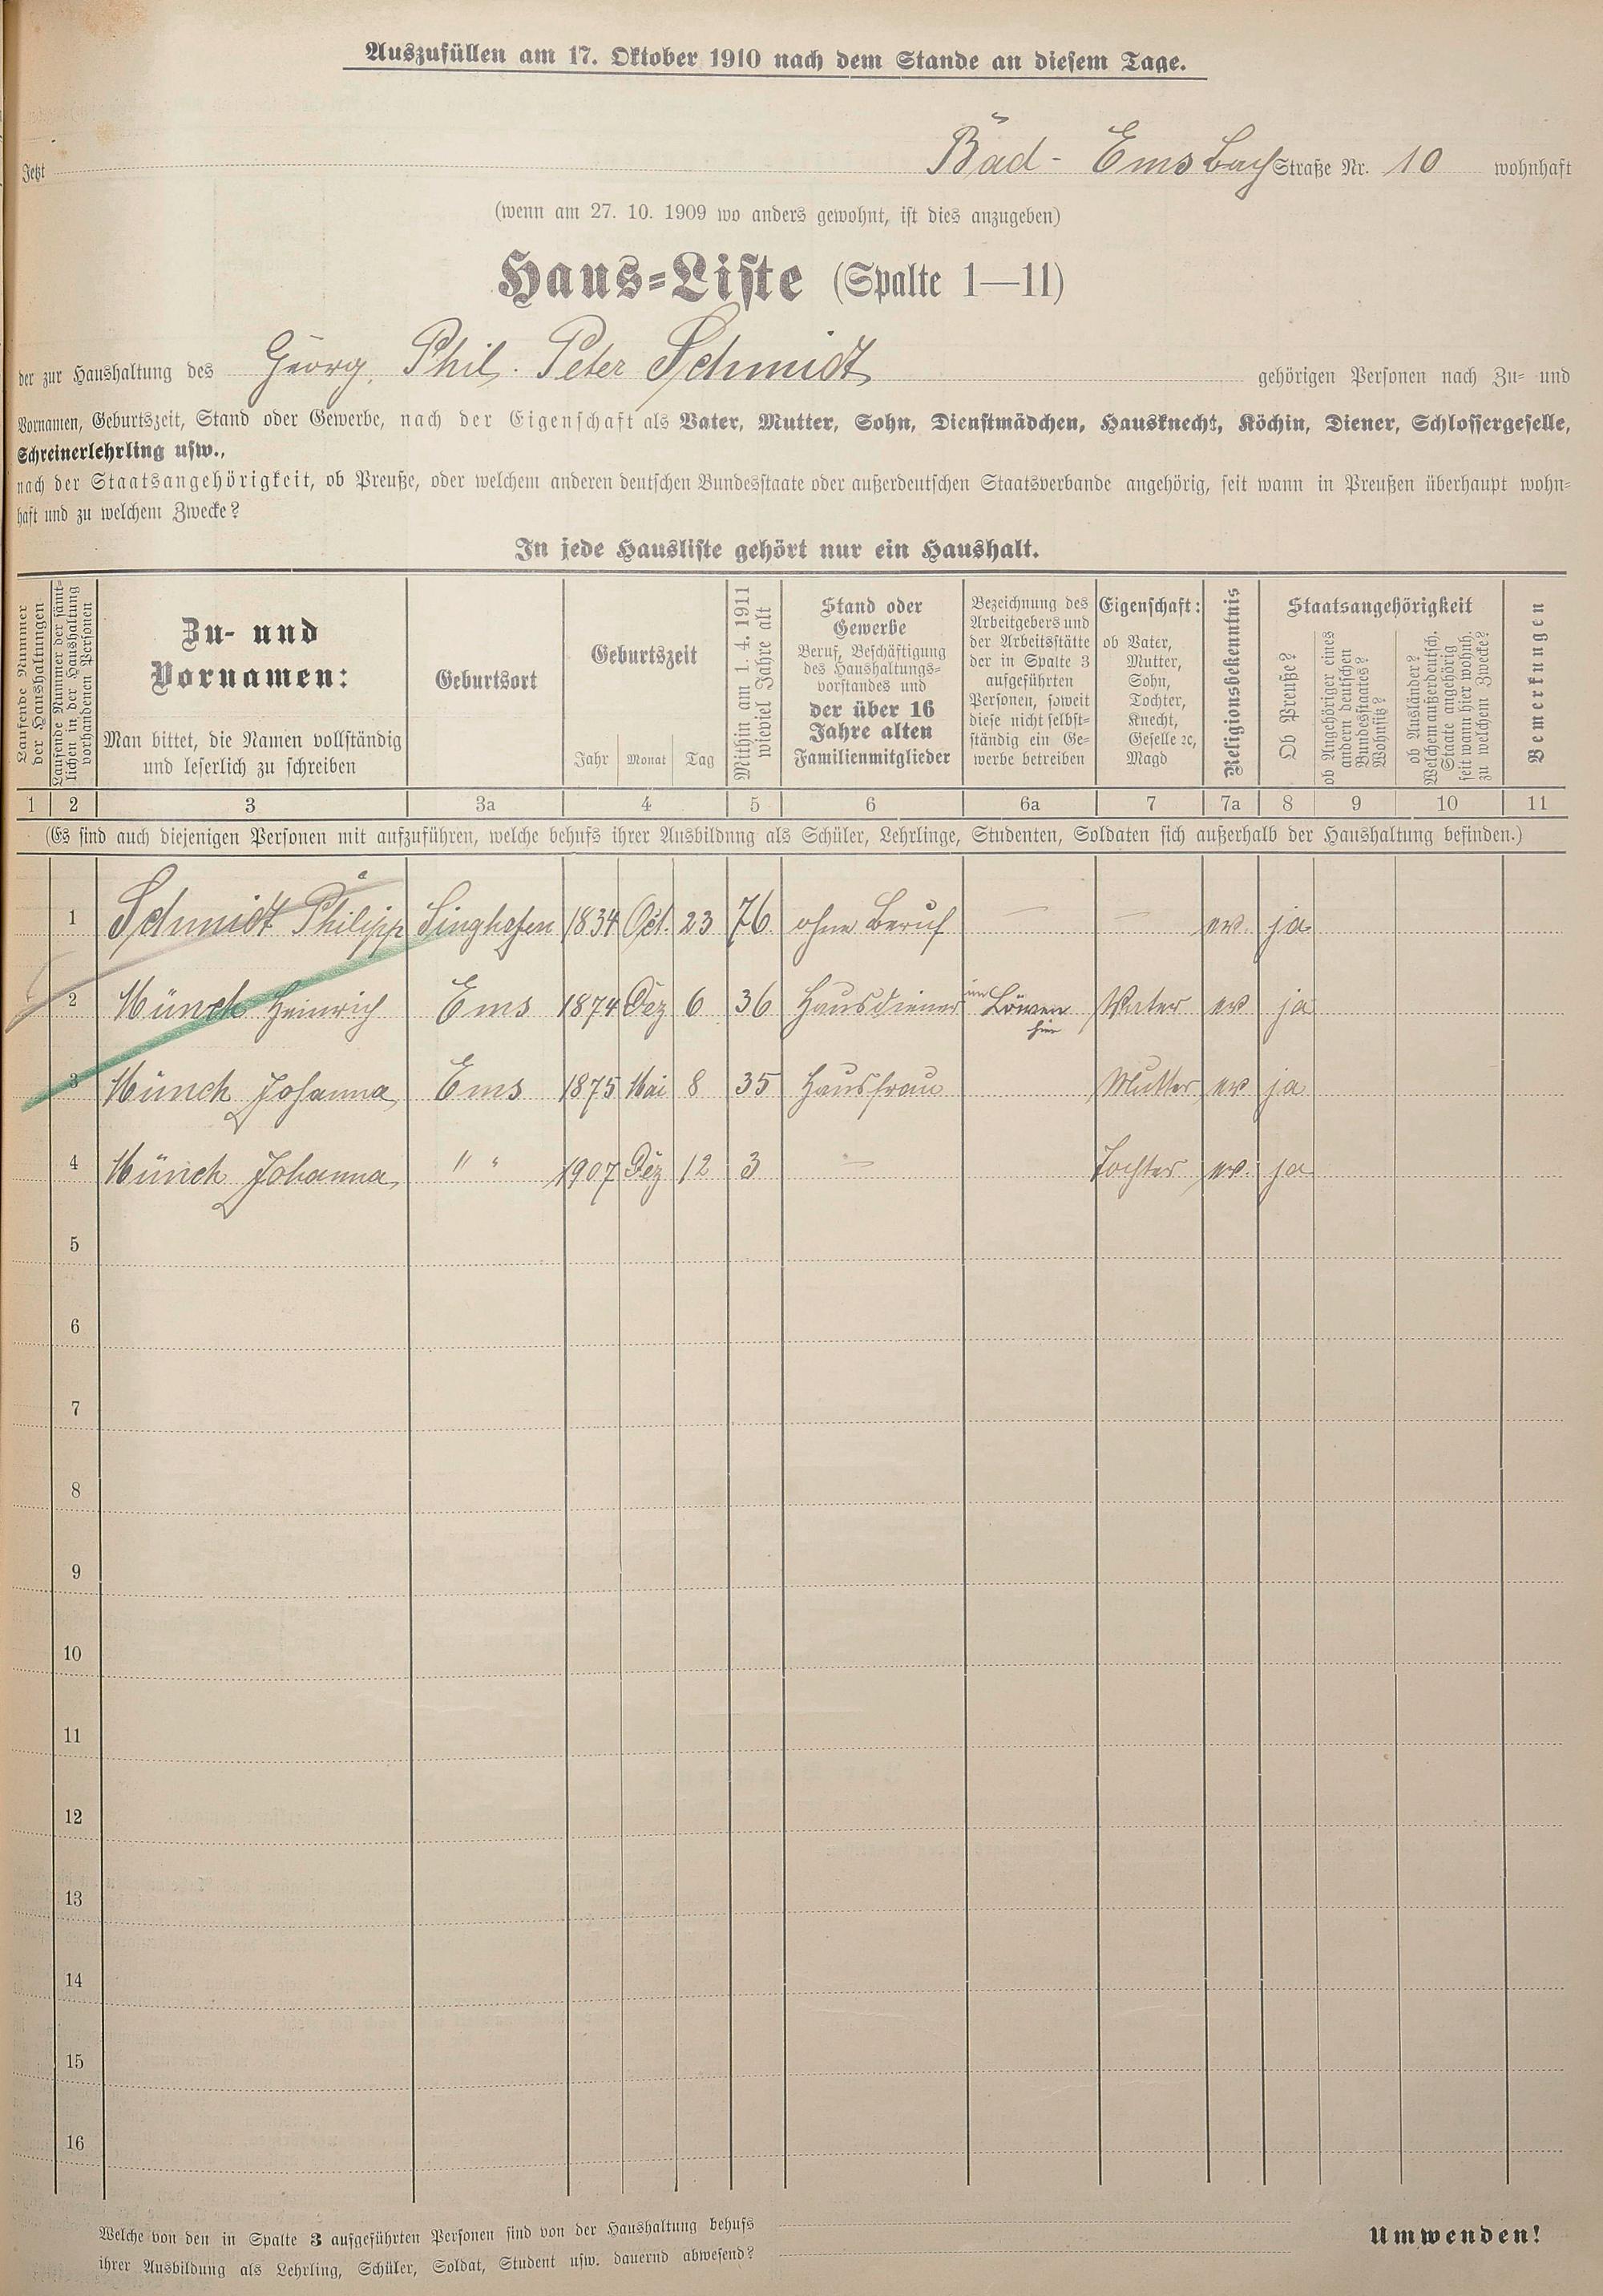 Auszufüllen am 17. Oktober 1910 nach dem Stande an diesem Tage.
Jetzt Bad-Ems Bach Straße Nr. 10 wohnhaft
(wenn am 27. 10. 1909 wo anders gewohnt, ist dies anzugeben)
Haus-Liste (Spalte 1—11)
der zur Haushaltung des Georg. Phil. Peter Schmidt gehörigen Personen nach Zu- und
Vornamen, Geburtszeit, Stand oder Gewerbe, nach der Eigenschaft als Vater, Mutter, Sohn, Dienstmädchen, Hausknecht, Köchin, Diener, Schlossergeselle,
Schreinerlehrling usw.,
nach der Staatsangehörigkeit, ob Preuße, oder welchem anderen deutschen Bundesstaate oder außerdeutschen Staatsverbande angehörig, seit wann in Preußen überhaupt wohn-
haft und zu welchem Zwecke?
In jede Hausliste gehört nur ein Haushalt.
Laufende Nummer
der Haushaltungen
Laufende Nummer der sämt-
lichen in der Haushaltung
vorhandenen Personen
Zu- und
Vornamen:
Man bittet, die Namen vollständig
und leserlich zu schreiben
Geburtsort
Geburtszeit
Jahr Monat Tag
Mithin am 1. 4. 1911
wieviel Jahre alt
Stand oder
Gewerbe
Beruf, Beschäftigung
des Haushaltungs-
vorstandes und
der über 16
Jahre alten
Familienmitglieder
Bezeichnung des
Arbeitgebers und
der Arbeitsstätte
der in Spalte 3
aufgeführten
Personen, soweit
diese nicht selbst-
ständig ein Ge-
werbe betreiben
Eigenschaft:
ob Vater,
Mutter,
Sohn,
Tochter,
Knecht,
Geselle ꝛc,
Magd
Religionsbekenntnis
Staatsangehörigkeit
Ob Preuße?
ob Angehöriger eines
andern deutschen
Bundesstaates?
Wohnsitz?
ob Ausländer?
Welchem außerdeutsch.
Staate angehörig
seit wann hier wohnh.
zu welchem Zwecke?
Bemerkungen
1 2 3 3a 4 5 6 6a 7 7a 8 9 10 11
(Es sind auch diejenigen Personen mit aufzuführen, welche behufs ihrer Ausbildung als Schüler, Lehrlinge, Studenten, Soldaten sich außerhalb der Haushaltung befinden.)
1 Schmidt Philipp Singhofen 1834 Oct. 23 76 ohne Beruf — — ev. ja
2 Münch Heinrich Ems 1874 Dez 6 36 Hausdiener im Löwen hier Vater ev ja
3 Münch Johanna Ems 1875 Mai 8 35 Hausfrau Mutter ev ja
4 Münch Johanna " " 1907 Dez 12 3 — Tochter ev. ja
5
6
7
8
9
10
11
12
13
14
15
16
Welche von den in Spalte 3 aufgeführten Personen sind von der Haushaltung behufs
ihrer Ausbildung als Lehrling, Schüler, Soldat, Student usw. dauernd abwesend?
Umwenden!